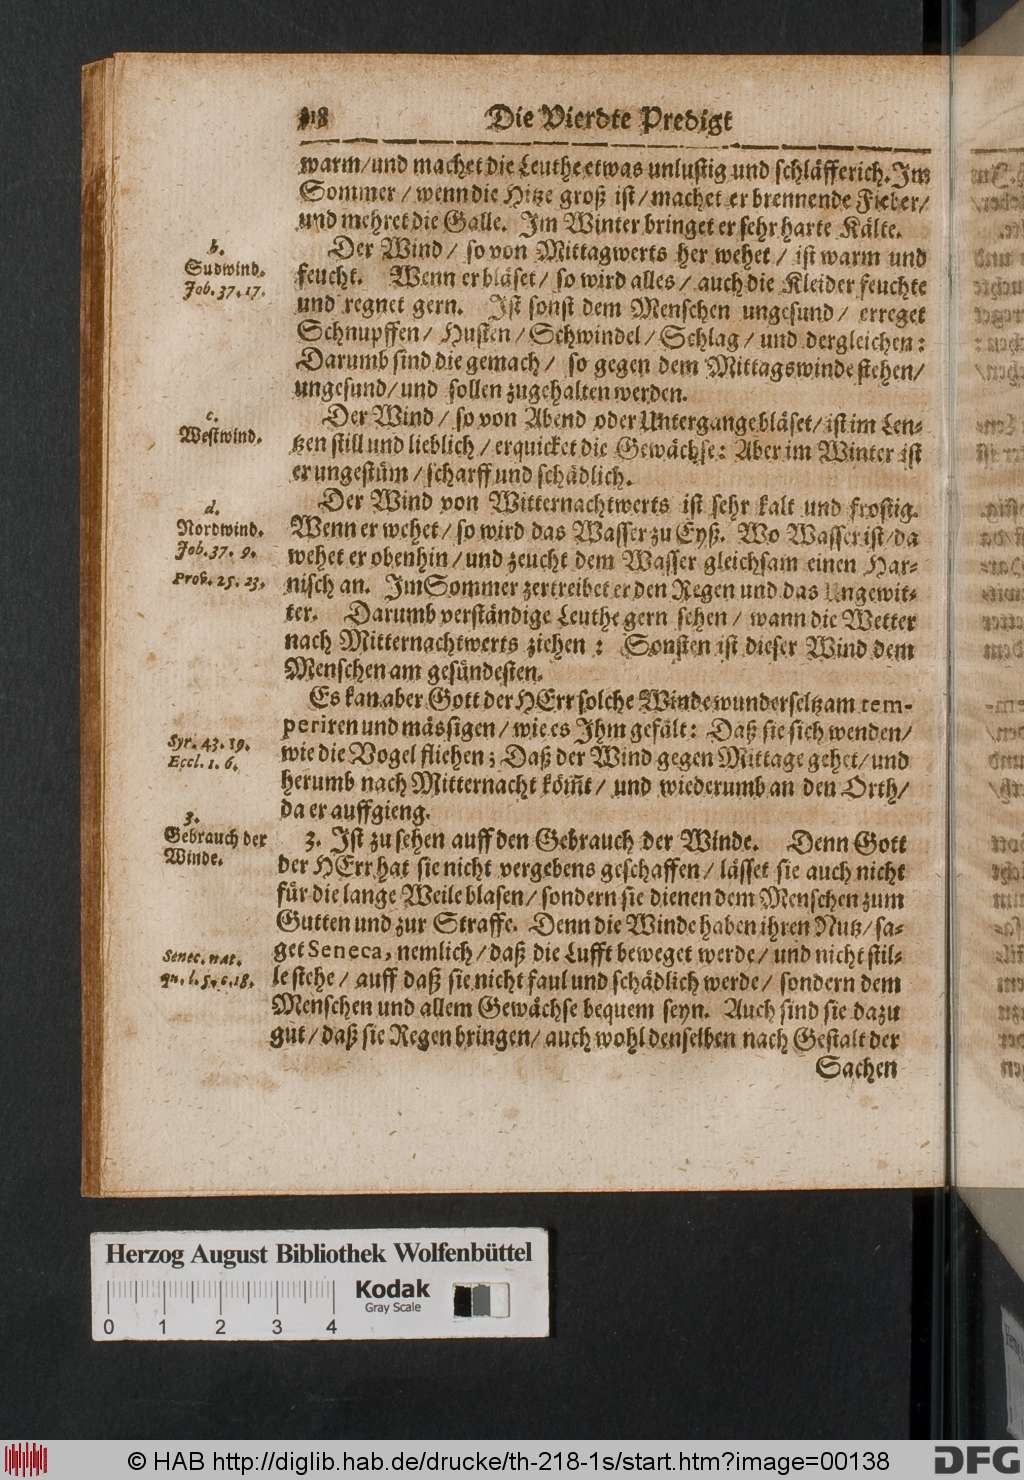 118 Die Vierdte Predigt
warm/und machet die Leuthe etwas unlustig und schläfferich. Im
Sommer/ wenn die Hitze groß ist/ machet er brennende Fieber/
und mehret die Galle. Im Winter bringet er sehr harte Kälte.
b.
Sudwind.
Job. 37. 17.
Der Wind/ so von Mittagwerts her wehet/ ist warm und
feucht. Wenn er bläset/ so wird alles/ auch die Kleider feuchte
und regnet gern. Ist sonst dem Menschen ungesund/ erreget
Schnupffen/ Husten/ Schwindel/ Schlag/ und dergleichen:
Darumb sind die gemach/ so gegen dem Mittagswinde stehen/
ungesund/ und sollen zugehalten werden.
c.
Westwind.
Der Wind/ so von Abend oder Untergange bläset/ ist im Len-
tzen still und lieblich/ erquicket die Gewächse: Aber im Winter ist
er ungestüm/ scharff und schädlich.
d.
Nordwind.
Job. 37. 9.
Prov. 25. 23.
Der Wind von Witternachtwerts ist sehr kalt und frostig.
Wenn er wehet/ so wird das Wasser zu Eyß. Wo Wasser ist/ da
wehet er obenhin/ und zeucht dem Wasser gleichsam einen Har-
nisch an. Im Sommer zertreibet er den Regen und das Ungewit-
ter. Darumb verständige Leuthe gern sehen/ wann die Wetter
nach Mitternachtwerts ziehen: Sonsten ist dieser Wind dem
Menschen am gesündesten.
Es kan aber Gott der HErr solche Winde wunderseltzam tem-
periren und mässigen/ wie es Ihm gefält: Daß sie sich wenden/
Syr. 43. 19.
Eccl. 1. 6.
wie die Vogel fliehen; Daß der Wind gegen Mittage gehet/ und
herumb nach Mitternacht köm̃t/ und wiederumb an den Orth/
da er auffgieng.
3.
Gebrauch der
Winde.
3. Ist zu sehen auff den Gebrauch der Winde. Denn Gott
der HErr hat sie nicht vergebens geschaffen/ lässet sie auch nicht
für die lange Weile blasen/ sondern sie dienen dem Menschen zum
Gutten und zur Straffe. Denn die Winde haben ihren Nutz/ sa-
Senec. nat.
qu. l. 5. c. 18.
get Seneca, nemlich/ daß die Lufft beweget werde/ und nicht stil-
le stehe/ auff daß sie nicht faul und schädlich werde/ sondern dem
Menschen und allem Gewächse bequem seyn. Auch sind sie dazu
gut/ daß sie Regen bringen/ auch wohl denselben nach Gestalt der
Sachen
Herzog August Bibliothek Wolfenbüttel
Kodak
Gray Scale
0 1 2 3 4
© HAB http://diglib.hab.de/drucke/th-218-1s/start.htm?image=00138
DFG